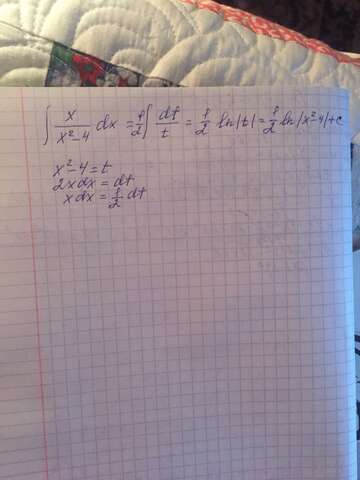 ∫ x/(x²-4) dx = 1/2 ∫ dt/t = 1/2 ln|t| = 1/2 ln|x²-4|+c
x²-4=t
2xdx = dt
xdx = 1/2 dt